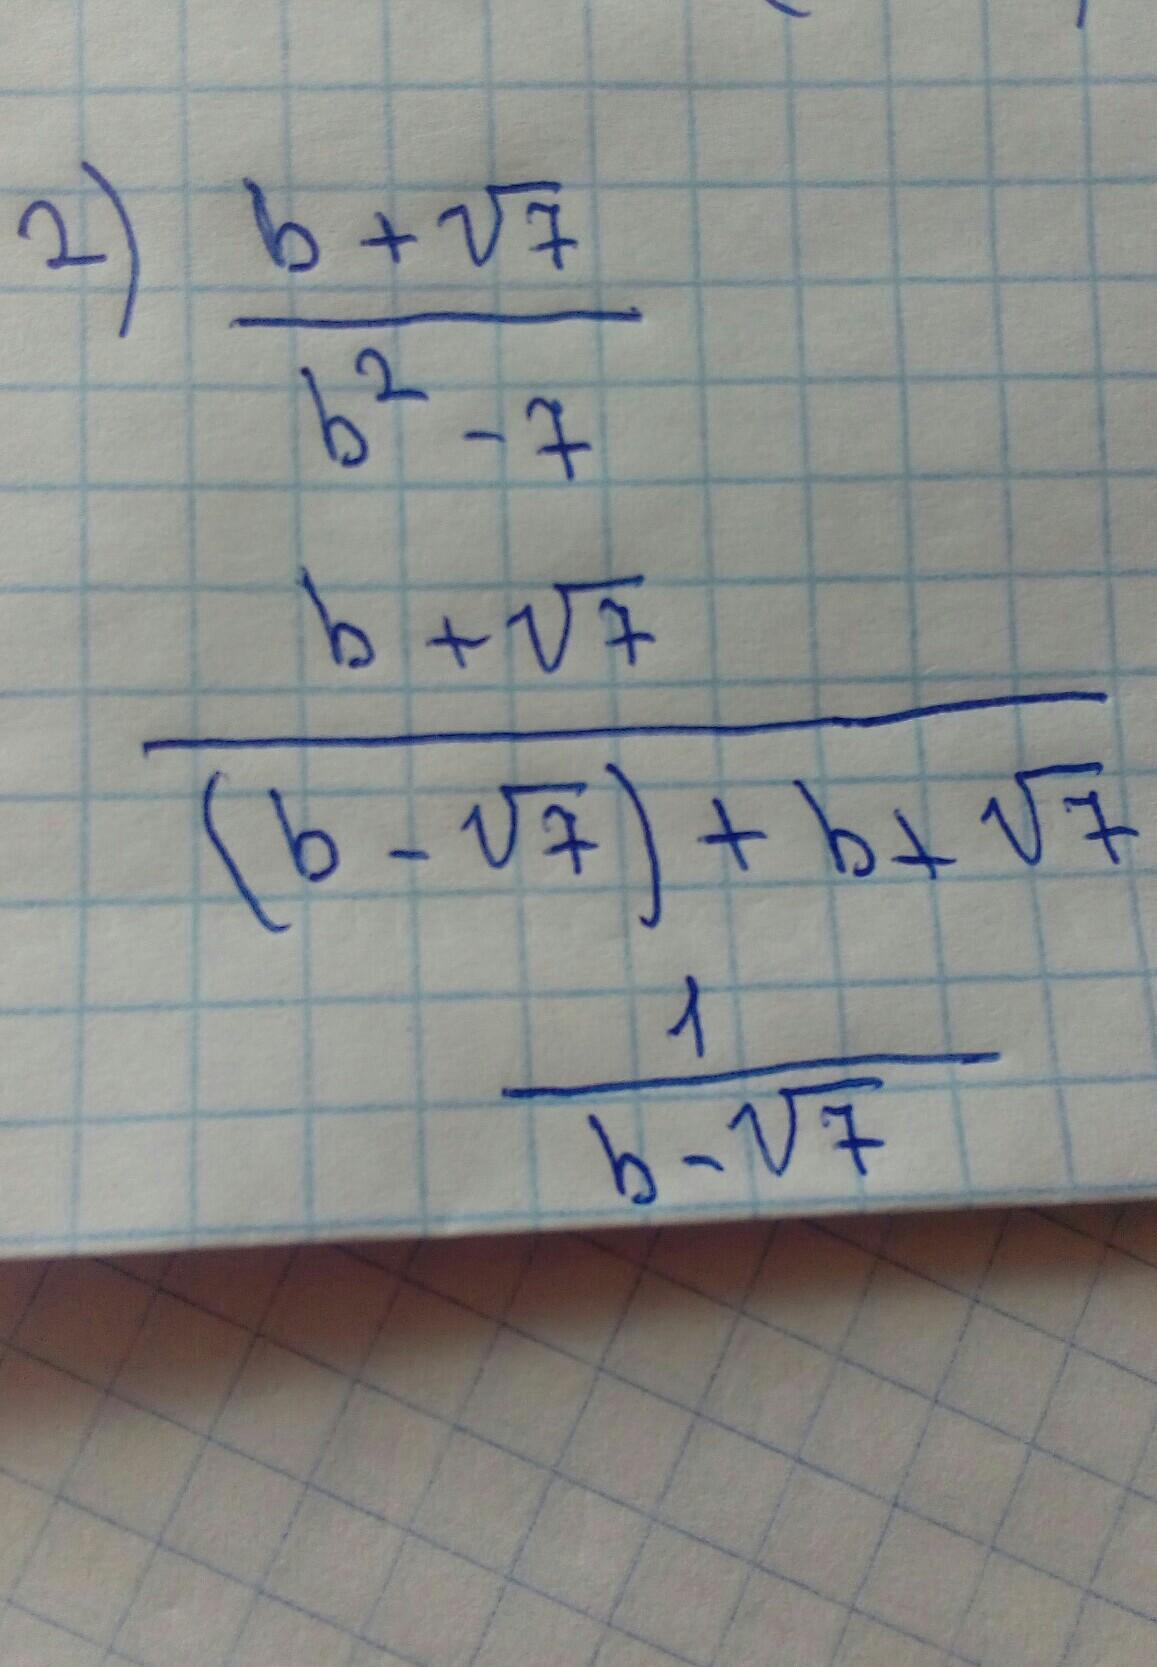 2) b + √7
b² - 7
b + √7
(b - √7) + b + √7
1
b - √7